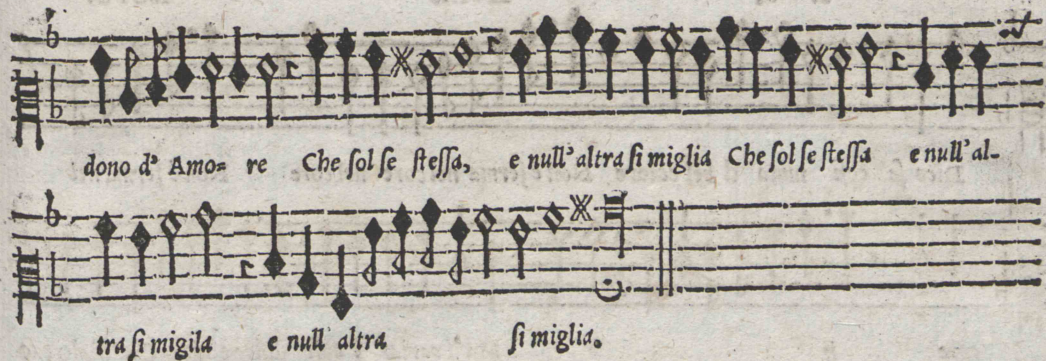 dono d' Amo= re Che ſol ſe ſteſſa, e null' altra ſi miglia Che ſol ſe ſteſſa e null' al-
tra ſi migila e null altra ſi miglia.